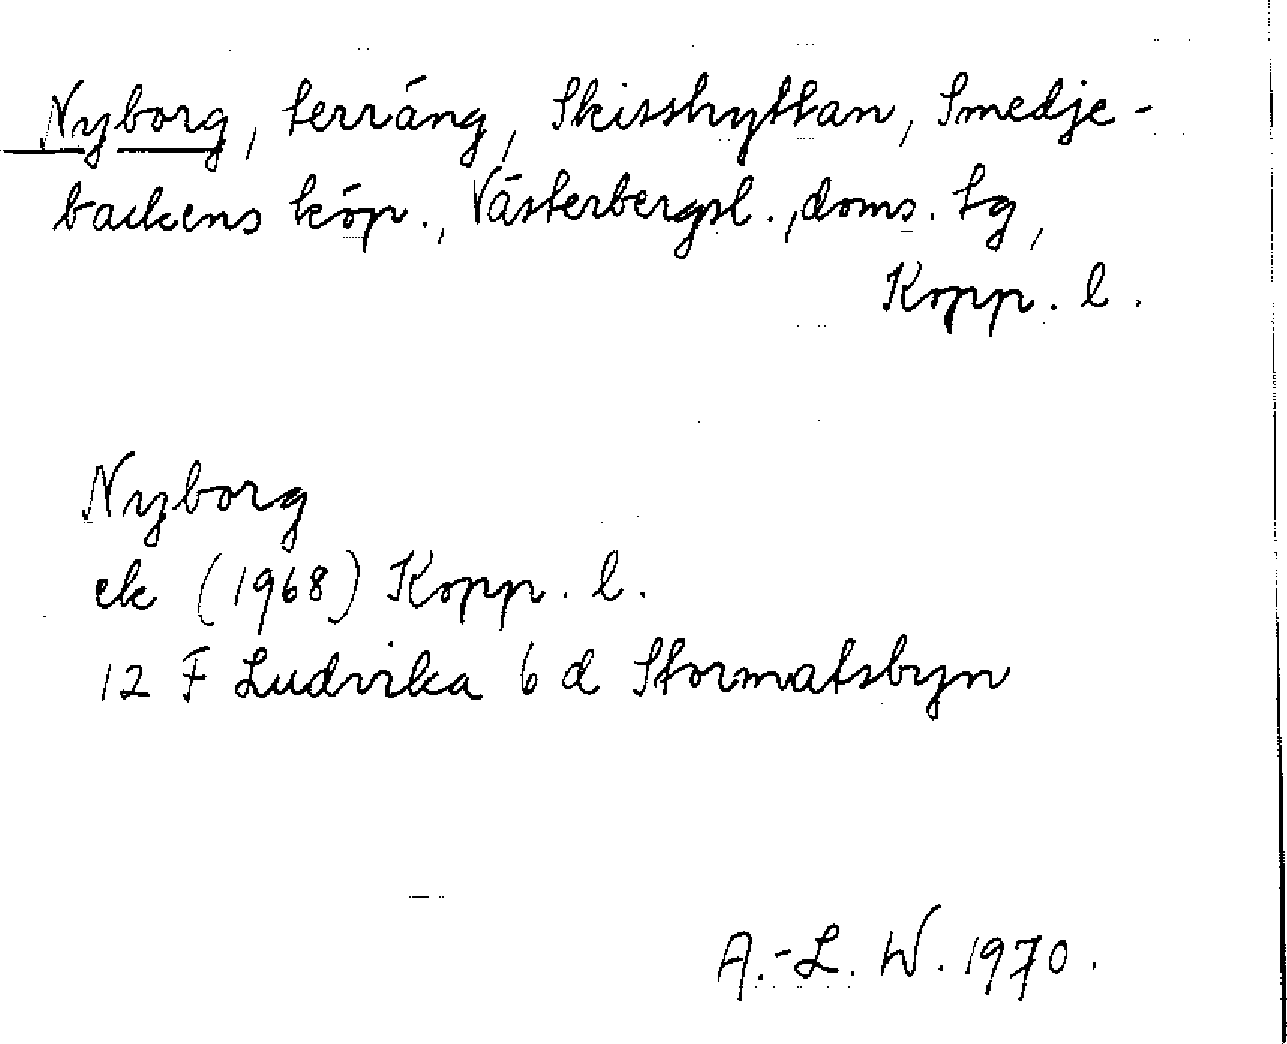 Nyborg, terräng, Skisshyttan, Smedje-
backens köp., Västerbergsl., doms. tg,
Kopp. l.
Nyborg
ek (1968) Kopp. l.
12 F Ludvika 6 d Stormatsbyn
A.-L. W. 1970.